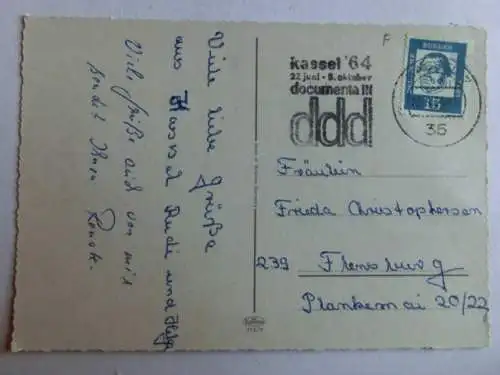 Viele liebe Grüße
aus Kassel Rudi und Helga
Viele Grüße auch von mir
sendet Ihnen Renate.
F
kassel '64
22 juni - 5. oktober
documenta III
ddd
15
35
Fräulein
Frieda Christophersen
239 Flensburg
Plankemai 20/22